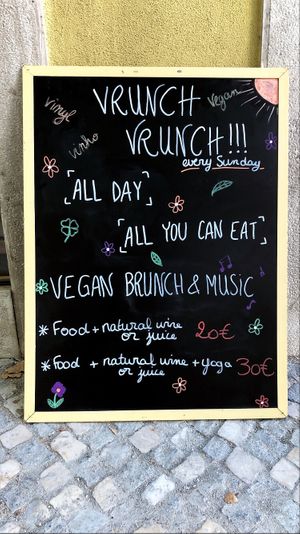 vinyl
vinho
vegan
VRUNCH
VRUNCH!!!
every Sunday
[ALL DAY]
[ALL YOU CAN EAT]
VEGAN BRUNCH & MUSiC
* Food + natural wine or juice 20€
* Food + natural wine + yoga or juice 30€